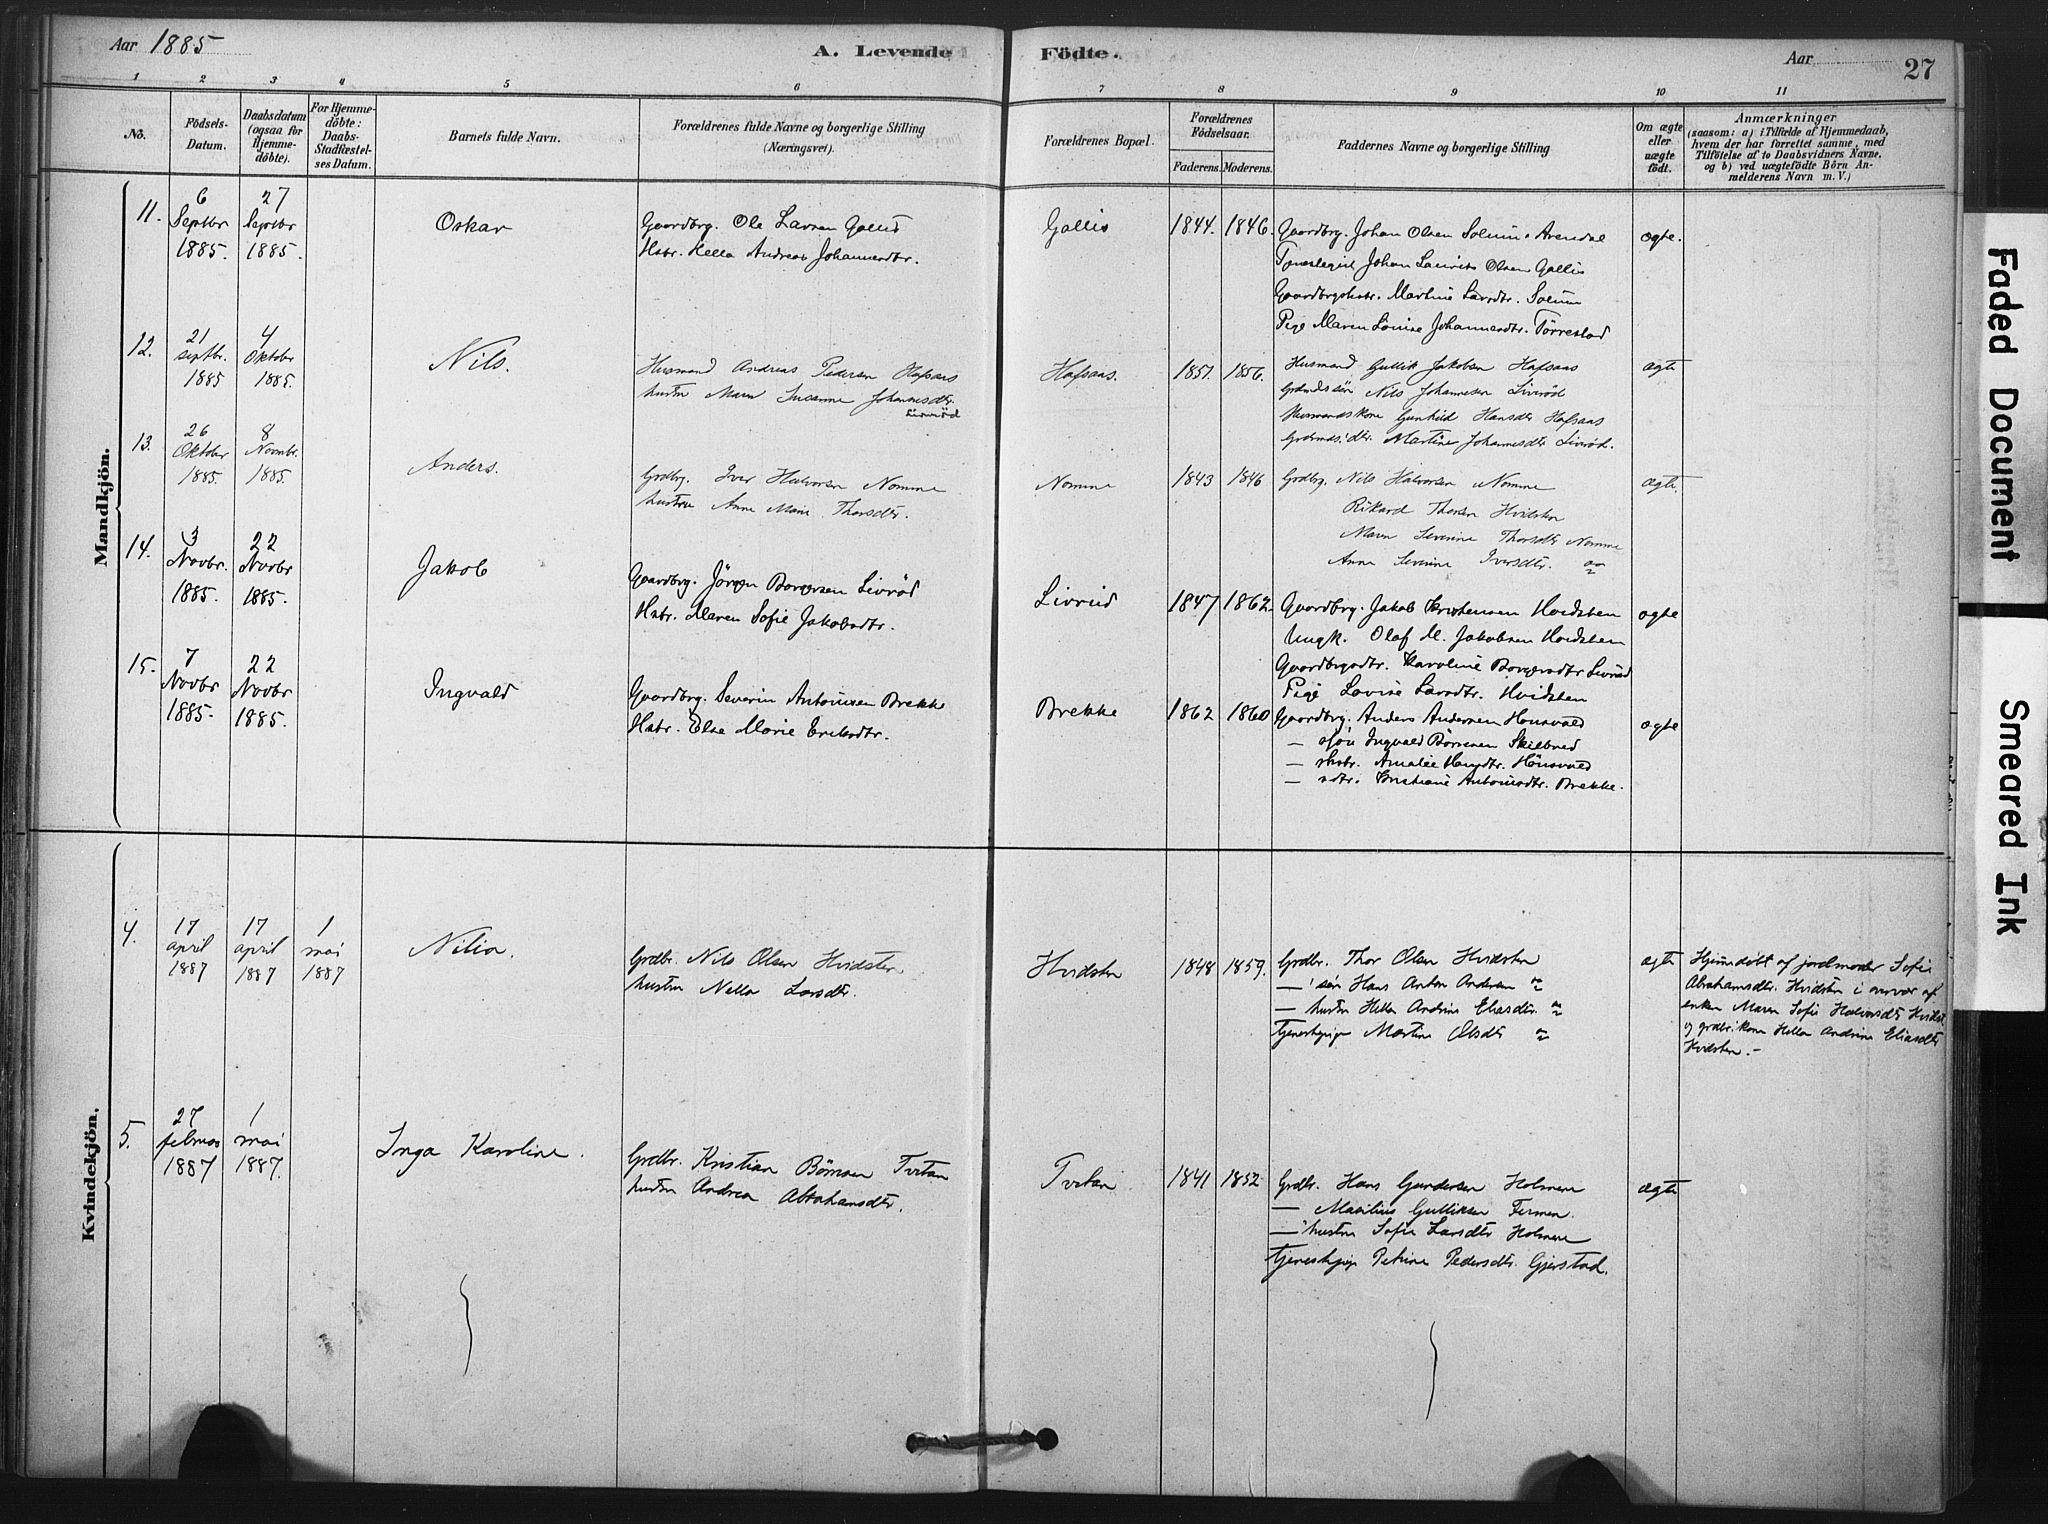 Aar 1885
A. Levende
Födte.
Aar
27
1 2 3 4 5 6 7 8 9 10 11
No.
Födsels-
Datum.
Daabsdatum
(ogsaa for
Hjemme-
döbte).
For Hjemme-
döbte:
Daabs-
Stadfæstel-
ses Datum.
Barnets fulde Navn.
Forældrenes fulde Navne og borgerlige Stilling
(Næringsvei).
Forældrenes Bopæl.
Forældrenes
Födselsaar.
Faderens. Moderens.
Faddernes Navne og borgerlige Stilling
Om ægte
eller
uægte
født.
Anmærkninger
(saasom: a) i Tilfælde af Hjemmedaab,
hvem der har forrettet samme, med
Tilföielse af to Daabsvidners Navne,
og b) ved uægtefödte Börn An-
melderens Navn m. V.)
Mandkjön.
11.
6
Septbr
1885.
27
Septbr
1885.
Oskar
Gaardbrg. Ole Larsen Gallis
Hstr. Hella Andrea Johannesdtr.
Gallis
1844. 1846.
Gaardbrg. Johan Olsen Solum Arendal
Johan Laurits Olsen Gallis
Martine Larsdtr. Solum
Pige Maren Lovise Johannesdtr. Tørrestad
ægte.
12.
21
septbr.
1885
4
Oktober
1885.
Nils.
Husmand Andreas Pedersen Hafsaas
hustru Maren Susanne Johannesdtr.
Hafsaas.
1851. 1856.
Husmand Gullik Jakobsen Hafsaas
Nils Johannesen Liverød
Husmandskone Gunhild Hansdtr Hafsaas
Martine Johannesdtr Liverød.
ægte
13.
26
Oktober
1885.
8
Novmbr.
1885.
Anders.
Grdbrg. Iver Halvorsen Nomme
hustru Anne Marie Thorsdtr.
Nomme
1843 1846
Grdbrg. Nils Halvorsen Nomme
Rikard Thorsen Hvidsten
Maren Severine Thorsdtr Nomme
Anne Severine Iversdtr.
ægte.
14.
3
Novbr.
1885.
22
Novbr
1885.
Jakob
Gaardbrg. Jörgen Borgersen Livrød
Hstr. Maren Sofie Jakobsdtr.
Livrud
1847 1862.
Gaardbrg. Jakob Kristensen Hvidsten
Ungk. Olaf M. Jakobsen Hvidsten
Gaardbrgsdtr. Karoline Borgersdtr Livrød
Pige Lovise Larsdtr. Hvidsten
ægte
15.
7
Novbr
1885.
22
Novbr
1885.
Ingvald
Gaardbrg. Severin Antonisen Brekke
Hstr. Else Marie Eriksdtr.
Brekke
1862 1860
Gaardbrg. Anders Andersen Hønsvald
— Ingvald Børresen Skilbred
— Amalie Hansdtr. Hønsvald
— Kristiane Antonisdtr. Brekke.
ægte
Kvindekjön.
4.
17
april
1887
17
april
1887
1
mai
1887
Nilia.
Grdbr. Nils Olsen Hvidsten
hustru Nella Larsdtr.
Hvidsten
1848 1859.
Grdbr. Thor Olsen Hvidsten
— søn Hans Anton Andersen
— hustru Hella Andrine Eliasdtr.
tjenestepige Martine Olsdtr
ægte
Hjemmedøbt af jordmoder Sofie
Abrahamsdtr. Hvidsten i overvær af
enken Maren Sofie Halvorsdtr Hvidst.
og grdbr.kone Hella Andrine Eliasdtr
Hvidsten.-
5.
27
februar
1887
1
mai
1887.
Inga Karoline.
Grdbr. Kristian Børresen Tvetan
hustru Andrea Abrahamsdtr.
Tvetan
1841 1852
Grdbr. Hans Gundersen Holmene
— Masilius Gulliksen Fermen.
— hustru Sofie Larsdtr Holmene
tjenestepige Petrine Pedersdtr. Gjerstad.
ægte
Faded Document
Smeared Ink